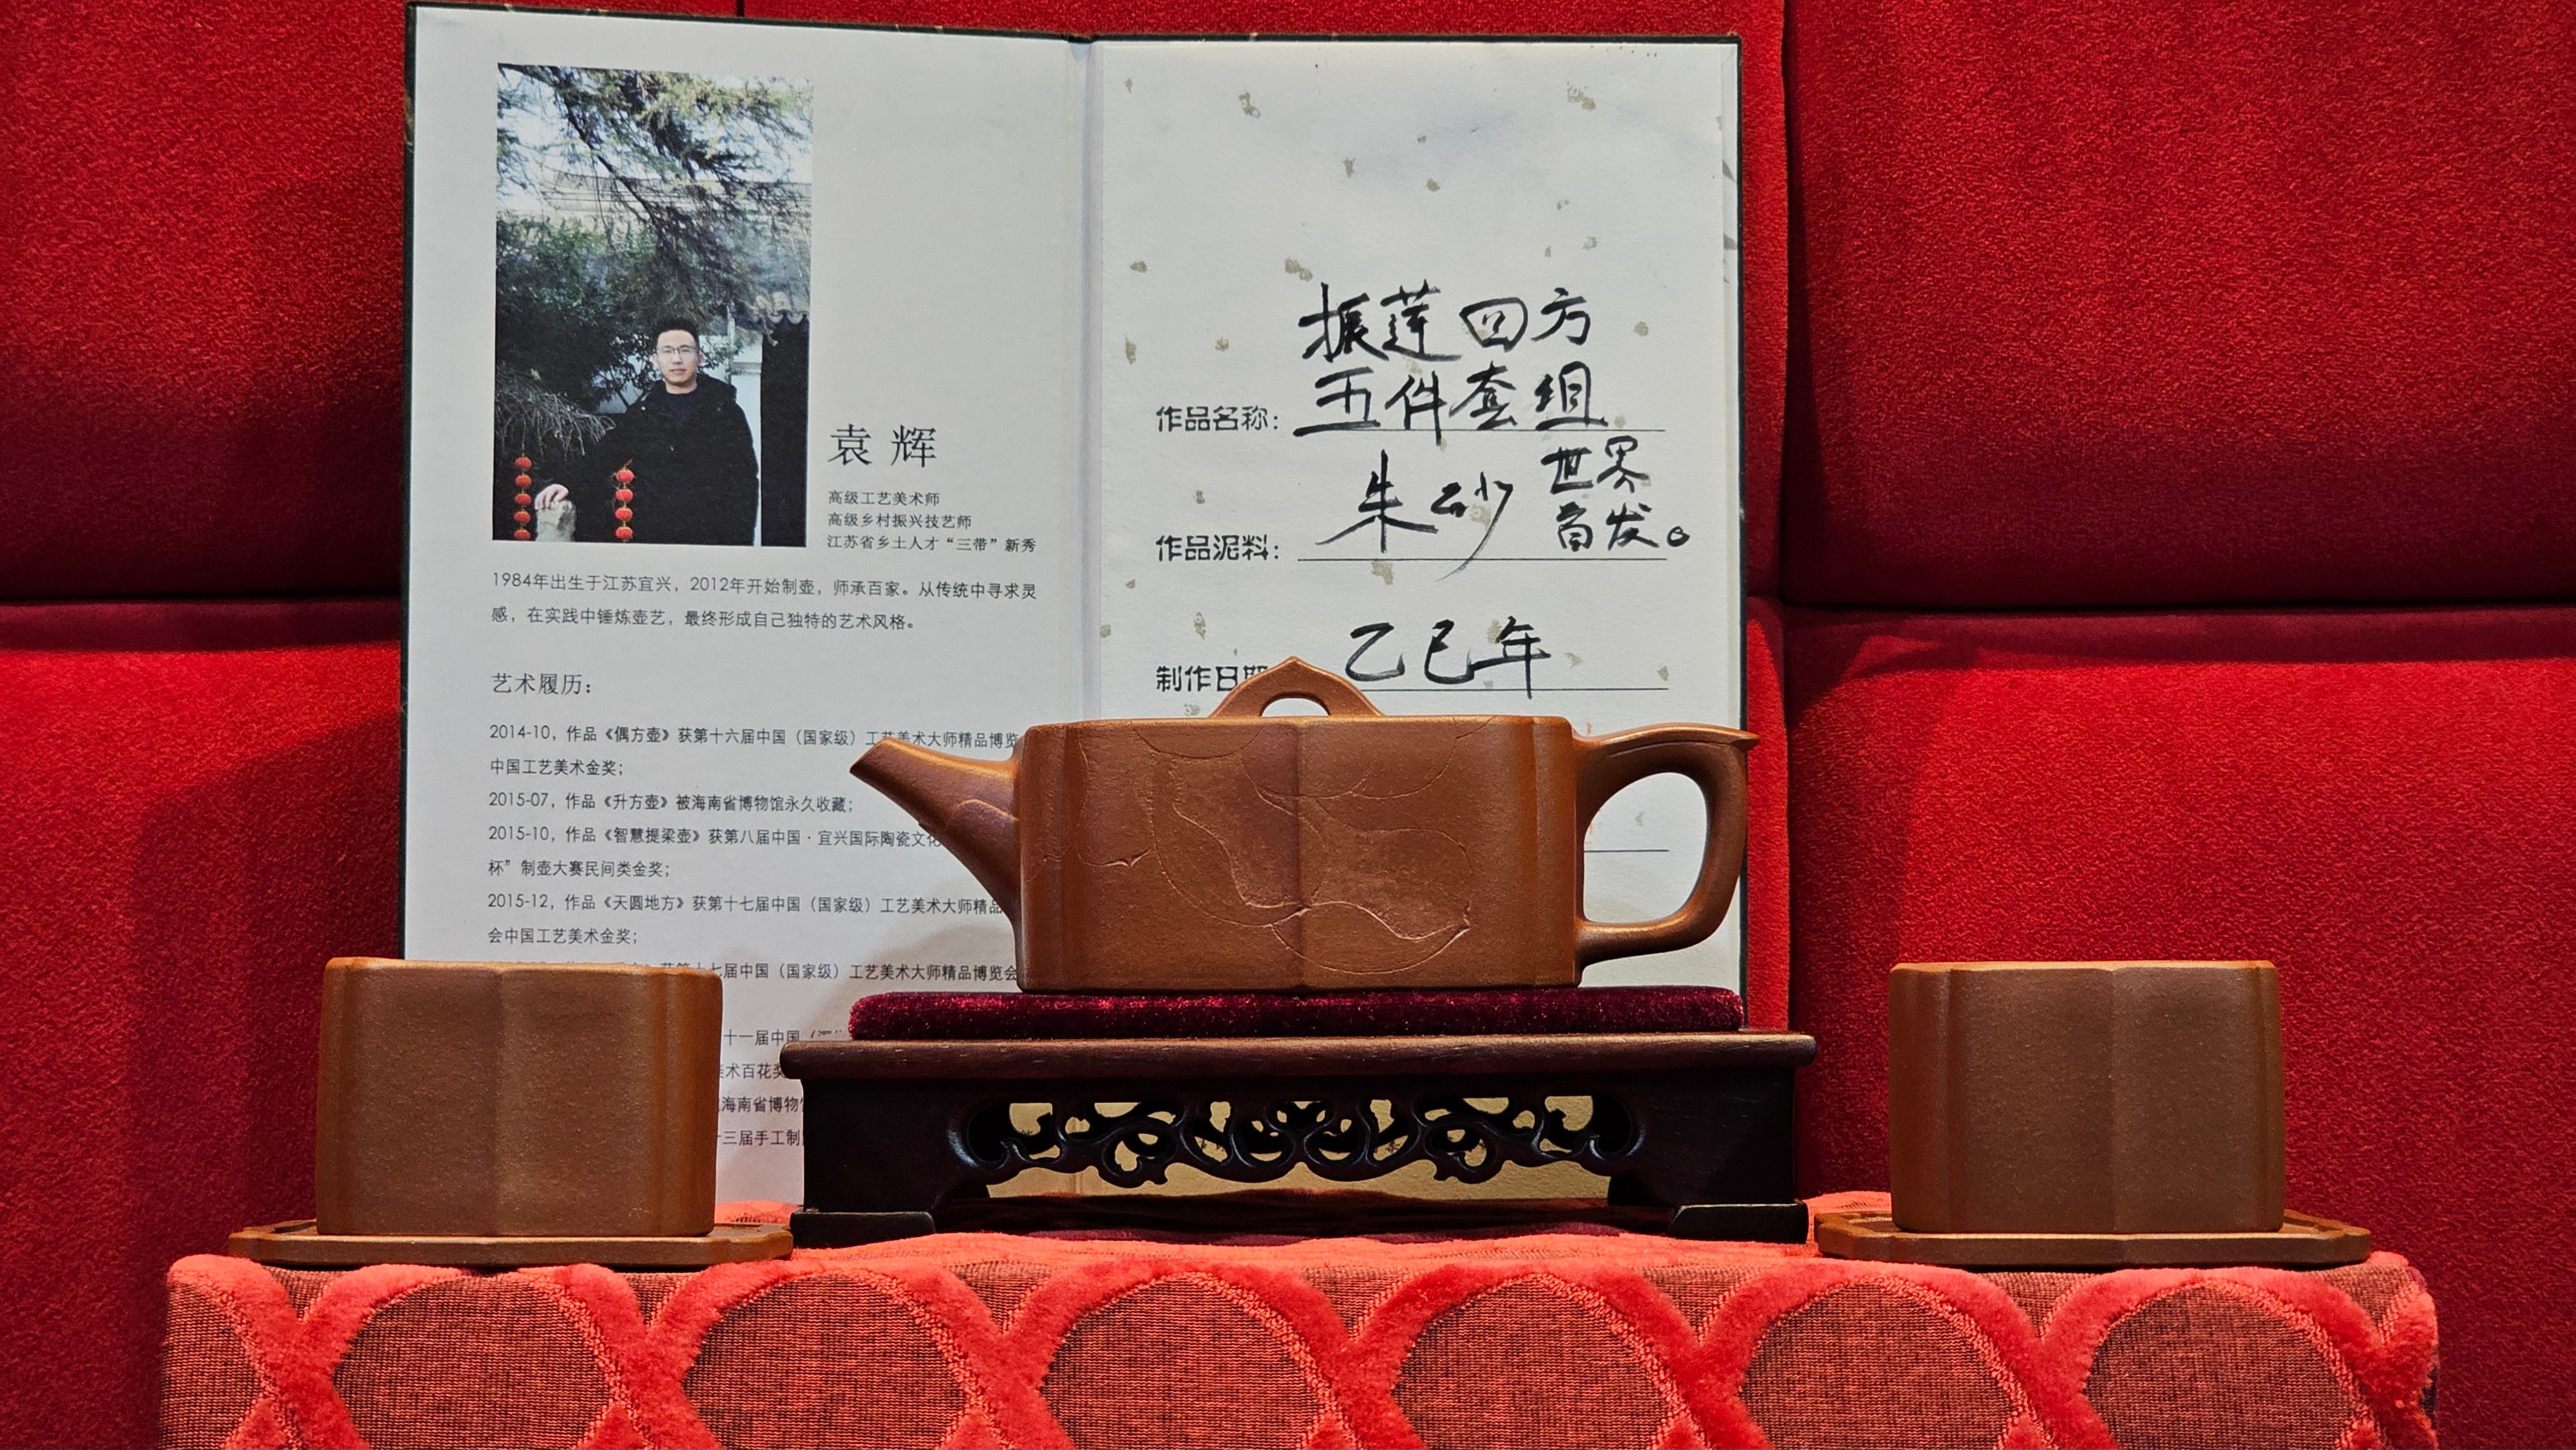 袁辉
高级工艺美术师
高级乡村振兴技艺师
江苏省乡土人才“三带”新秀
1984年出生于江苏宜兴，2012年开始制壶，师承百家。从传统中寻求灵
感，在实践中锤炼壶艺，最终形成自己独特的艺术风格。
艺术履历：
2014-10，作品《偶方壶》获第十六届中国（国家级）工艺美术大师精品博览
中国工艺美术金奖；
2015-07，作品《升方壶》被海南省博物馆永久收藏；
2015-10，作品《智慧提梁壶》获第八届中国·宜兴国际陶瓷文化
杯”制壶大赛民间类金奖；
2015-12，作品《天圆地方》获第十七届中国（国家级）工艺美术大师精品
会中国工艺美术金奖；
七届中国（国家级）工艺美术大师精品博览会
十一届中国（
术百花奖
海南省博物
三届手工制
振莲四方
作品名称：五件套组
作品泥料：朱砂
世界
首发。
制作日期 乙巳年